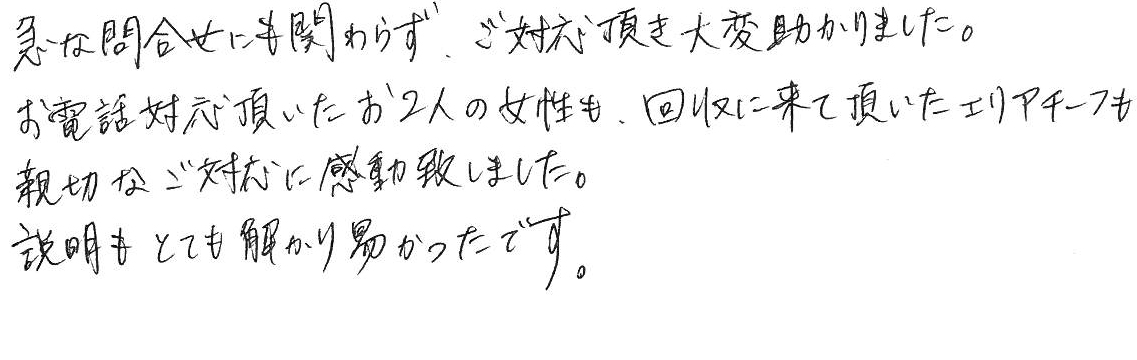 急な問合せにも関わらず、ご対応頂き大変助かりました。
お電話対応頂いたお2人の女性も、回収に来て頂いたエリアチーフも
親切なご対応に感動致しました。
説明もとても解かり易かったです。